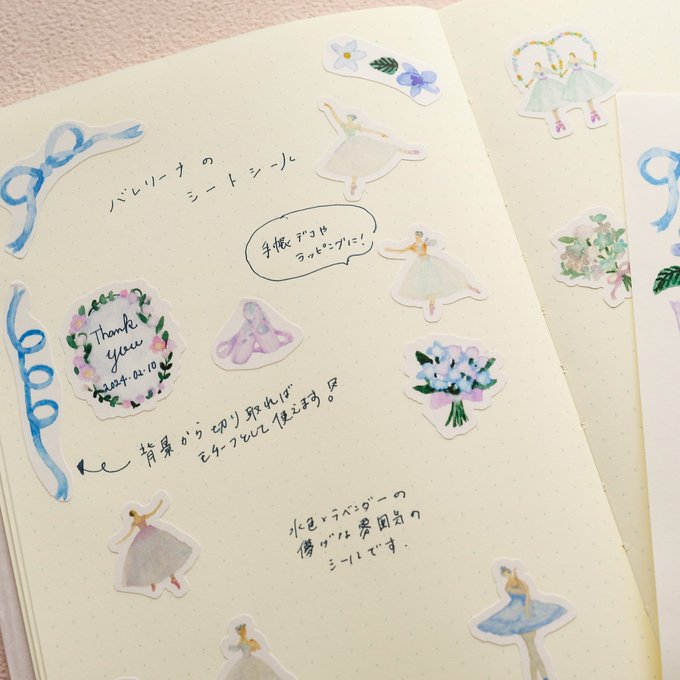 バレリーナの
シートシール
手帳デコや
ラッピングに!
Thank
you
2024.02.10
背景から切り取れば
モチーフとして使えます!
水色とラベンダーの
儚げな雰囲気の
シールです.